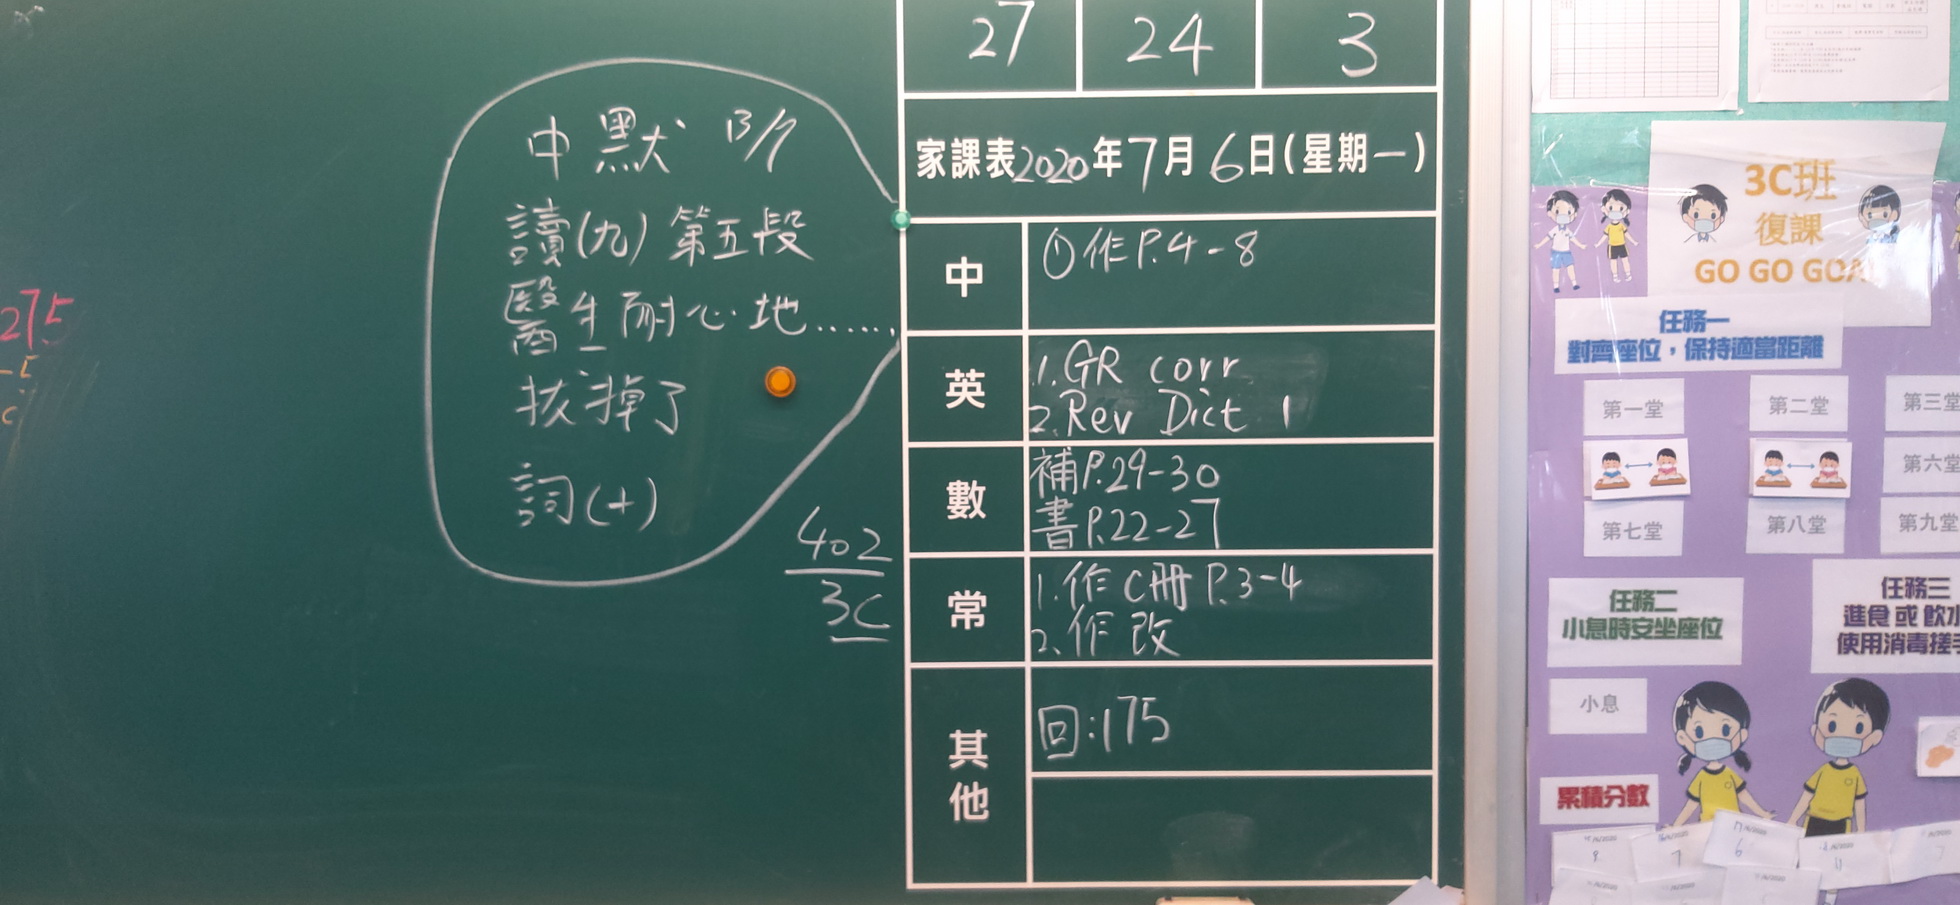 27 24 3
家課表2020年7月6日(星期一)
中 ①作P.4-8
英 1.GR corr
2.Rev Dict 1
數 補P.29-30
書P.22-27
常 1.作C冊P.3-4
2.作改
其他 回:175
中默 13/7
讀(九)第五段
醫生耐心地……
拔掉了
詞(十)
402
3C
275
3C班
復課
GO GO GOAL
任務一
對齊座位，保持適當距離
第一堂 第二堂 第三堂
第六堂
第七堂 第八堂 第九堂
任務二
小息時安坐座位
小息
任務三
進食或飲水
使用消毒搓手
累積分數